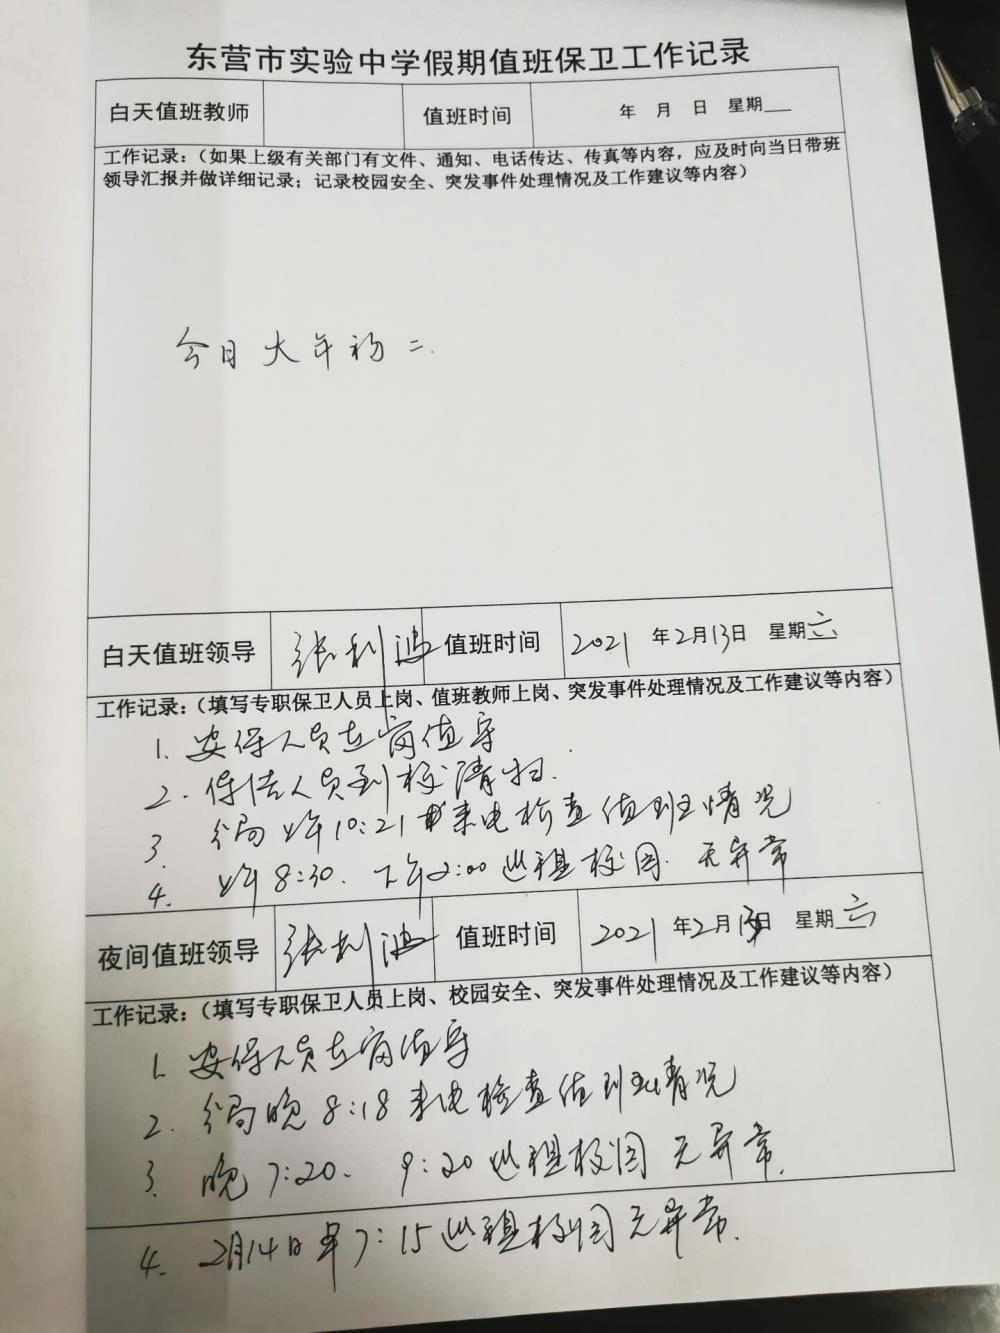 东营市实验中学假期值班保卫工作记录
白天值班教师 值班时间 年 月 日 星期
工作记录：（如果上级有关部门有文件、通知、电话传达、传真等内容，应及时向当日带班
领导汇报并做详细记录；记录校园安全、突发事件处理情况及工作建议等内容）
今日大年初二.
白天值班领导 张利波 值班时间 2021 年2月13日 星期六
工作记录：（填写专职保卫人员上岗、值班教师上岗、突发事件处理情况及工作建议等内容）
1. 安保人员在岗值守
2. 保洁人员到校清扫.
3. 分局上午10:21来电检查值班情况
4. 上午8:30. 下午2:00巡视校园. 无异常
夜间值班领导 张利波 值班时间 2021 年2月13日 星期六
工作记录：（填写专职保卫人员上岗、校园安全、突发事件处理情况及工作建议等内容）
1. 安保人员在岗值守
2. 分局晚8:18来电检查值班情况
3. 晚7:20. 9:20巡视校园无异常.
4. 2月14日早7:15巡视校园无异常.